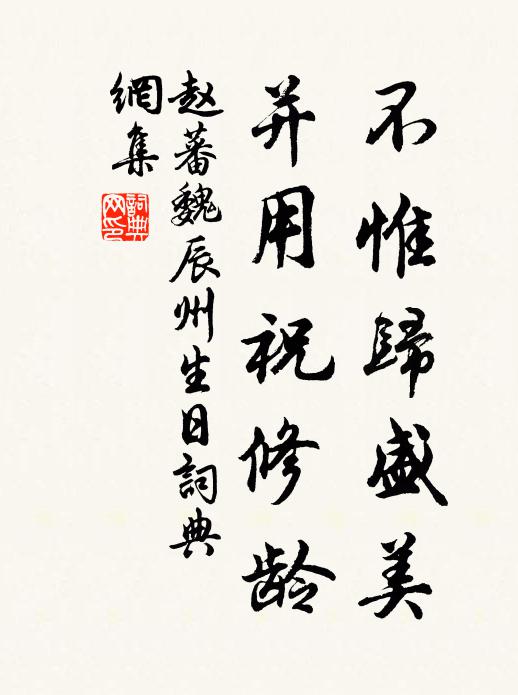 不惟歸盛美
并用祝修龄
赵蕃魏辰州生日詞典
網集
詞典
网印